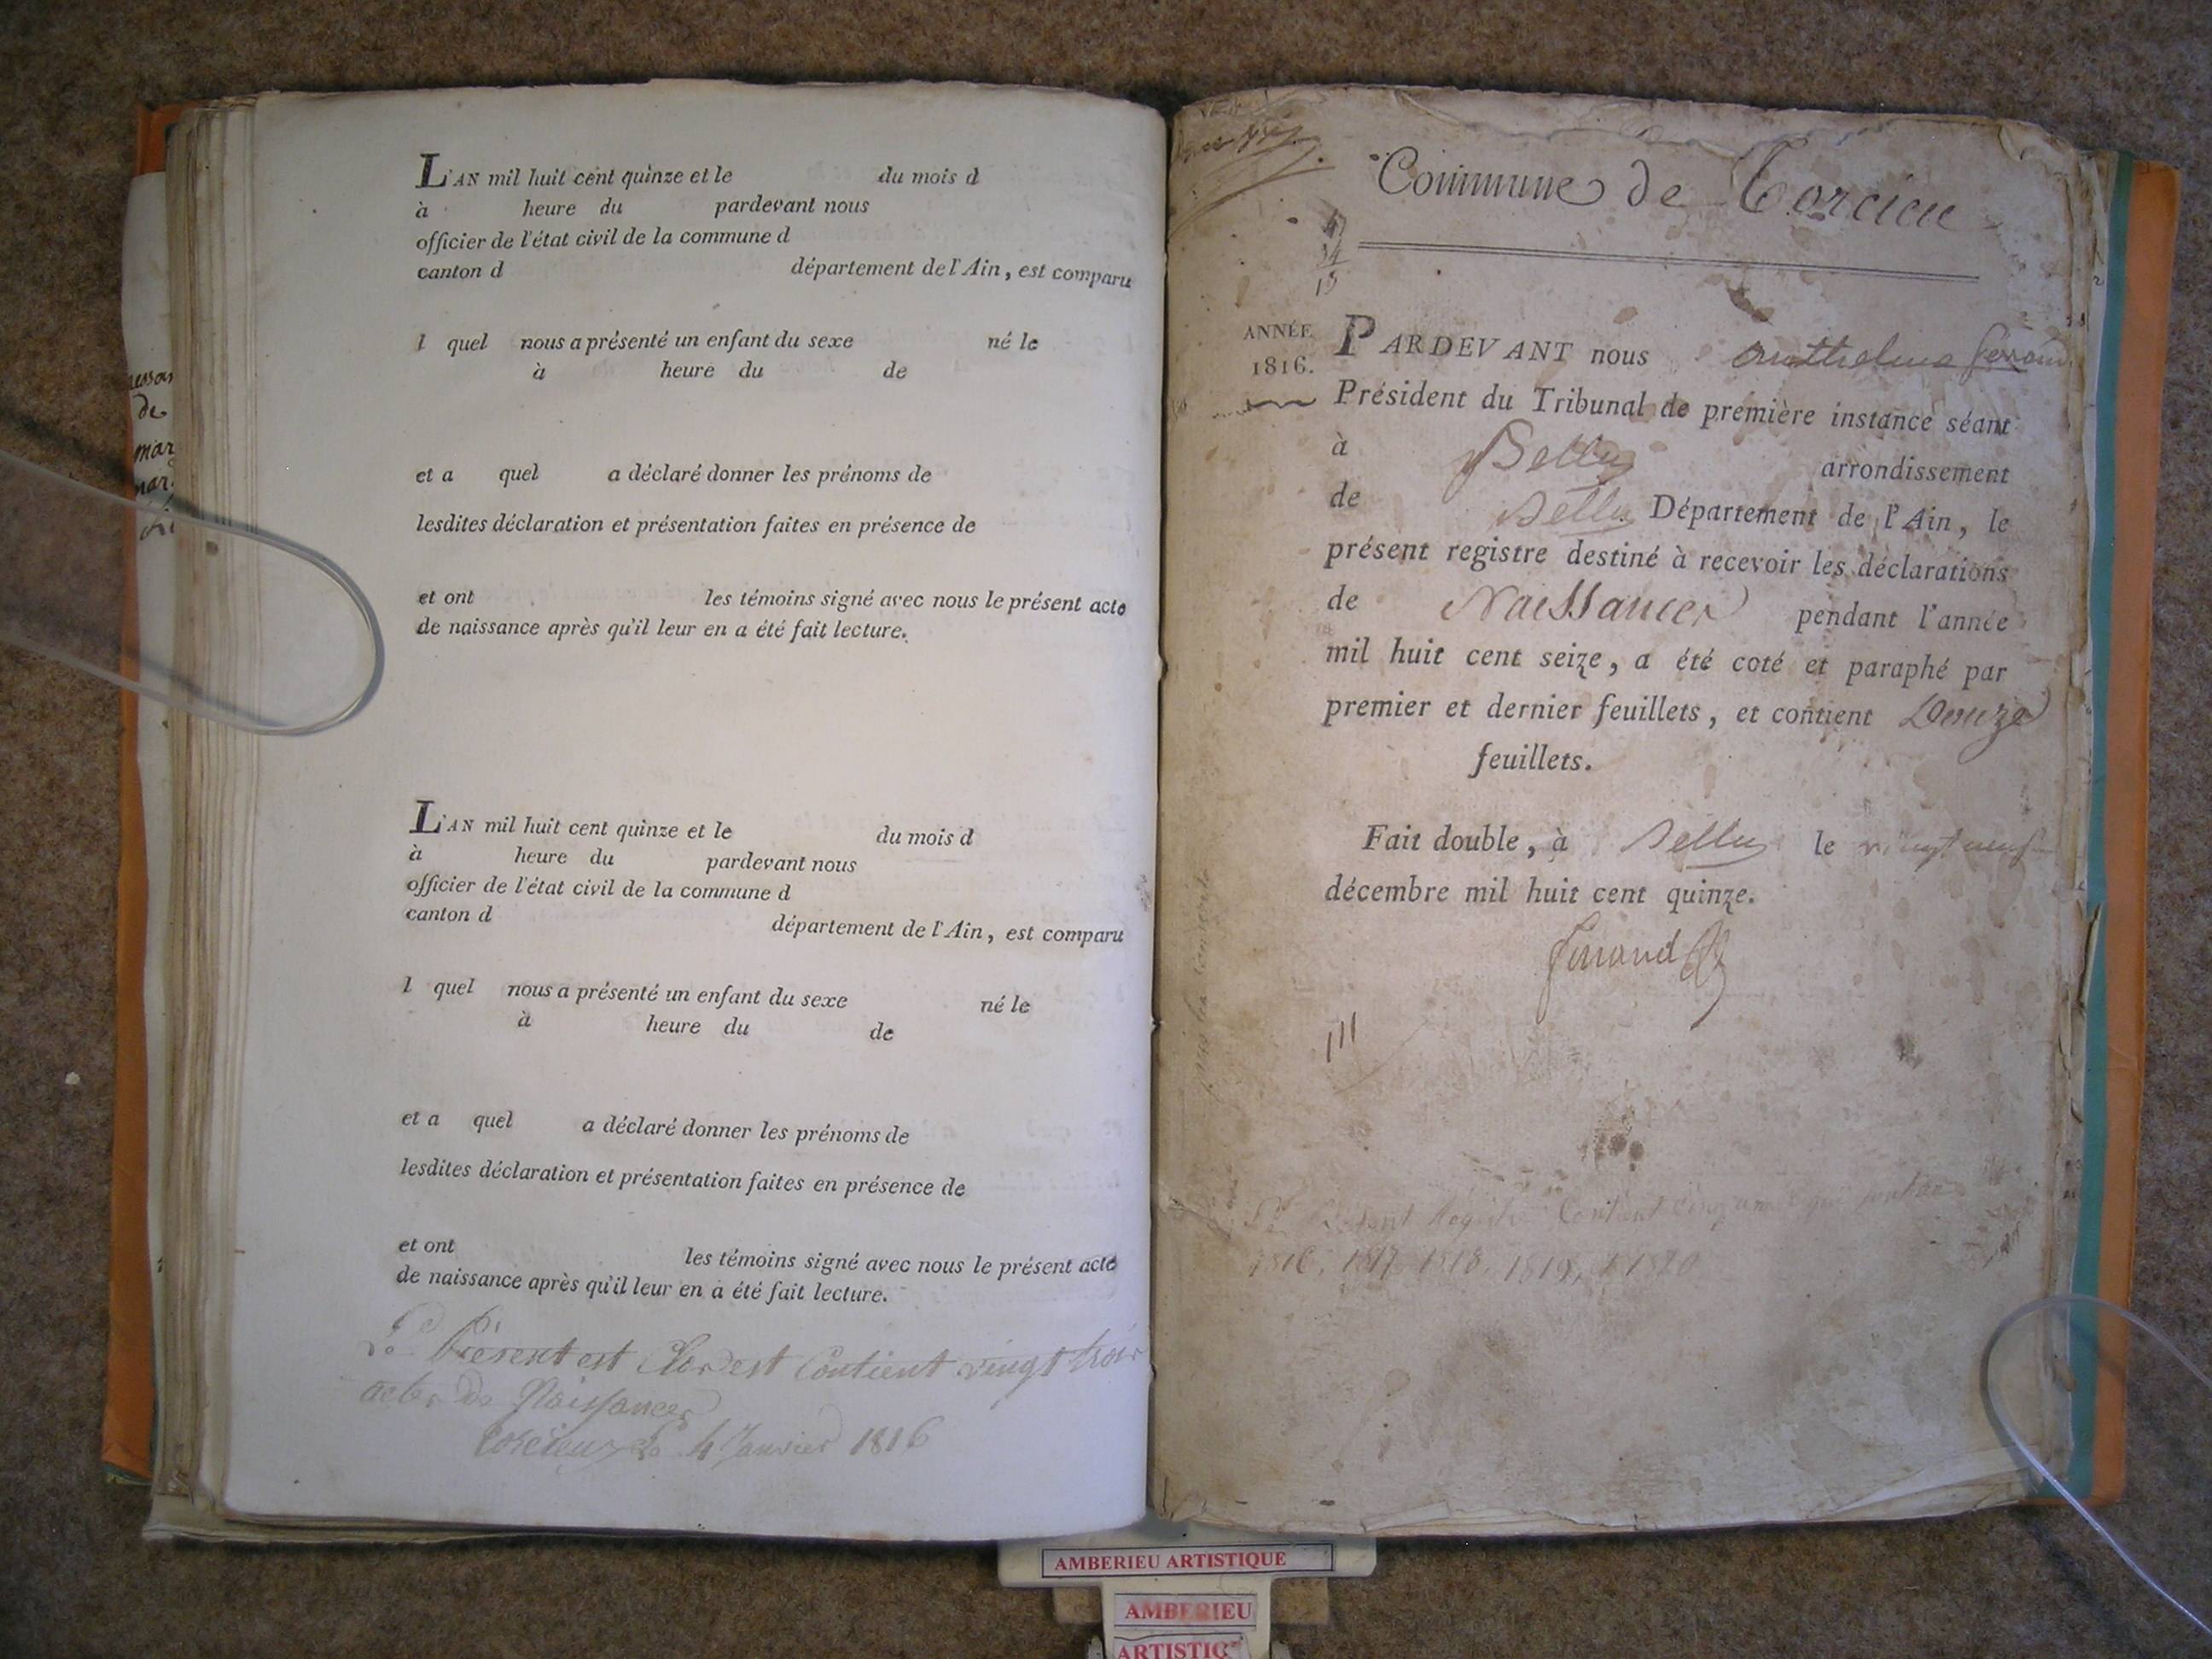 L'AN mil huit cent quinze et le du mois d
à heure du pardevant nous
officier de l'état civil de la commune d
canton d département de l'Ain, est comparu
l quel nous a présenté un enfant du sexe né le
à heure du de
et a quel a déclaré donner les prénoms de
lesdites déclaration et présentation faites en présence de
et ont les témoins signé avec nous le présent acte
de naissance après qu'il leur en a été fait lecture.
L'AN mil huit cent quinze et le du mois d
à heure du pardevant nous
officier de l'état civil de la commune d
canton d département de l'Ain, est comparu
l quel nous a présenté un enfant du sexe né le
à heure du de
et a quel a déclaré donner les prénoms de
lesdites déclaration et présentation faites en présence de
et ont les témoins signé avec nous le présent acte
de naissance après qu'il leur en a été fait lecture.
Le Présent est Clos est Contient vingt trois
actes de Naissances
4 Janvier 1816
de
mar
Commune de Torcieu
47
34
13
ANNÉE
1816.
PARDEVANT nous Anthelme ferrand
Président du Tribunal de première instance séant
à Belley arrondissement
de Belley Département de l'Ain, le
présent registre destiné à recevoir les déclarations
de Naissances pendant l'année
mil huit cent seize, a été coté et paraphé par
premier et dernier feuillets, et contient Douze
feuillets.
Fait double, à Belley le vingt neuf
décembre mil huit cent quinze.
ferrand
Le Présent Registre Contient cinq
1816, 1817 1818, 1819, 1820
AMBERIEU ARTISTIQUE
AMBERIEU
ARTISTIQ